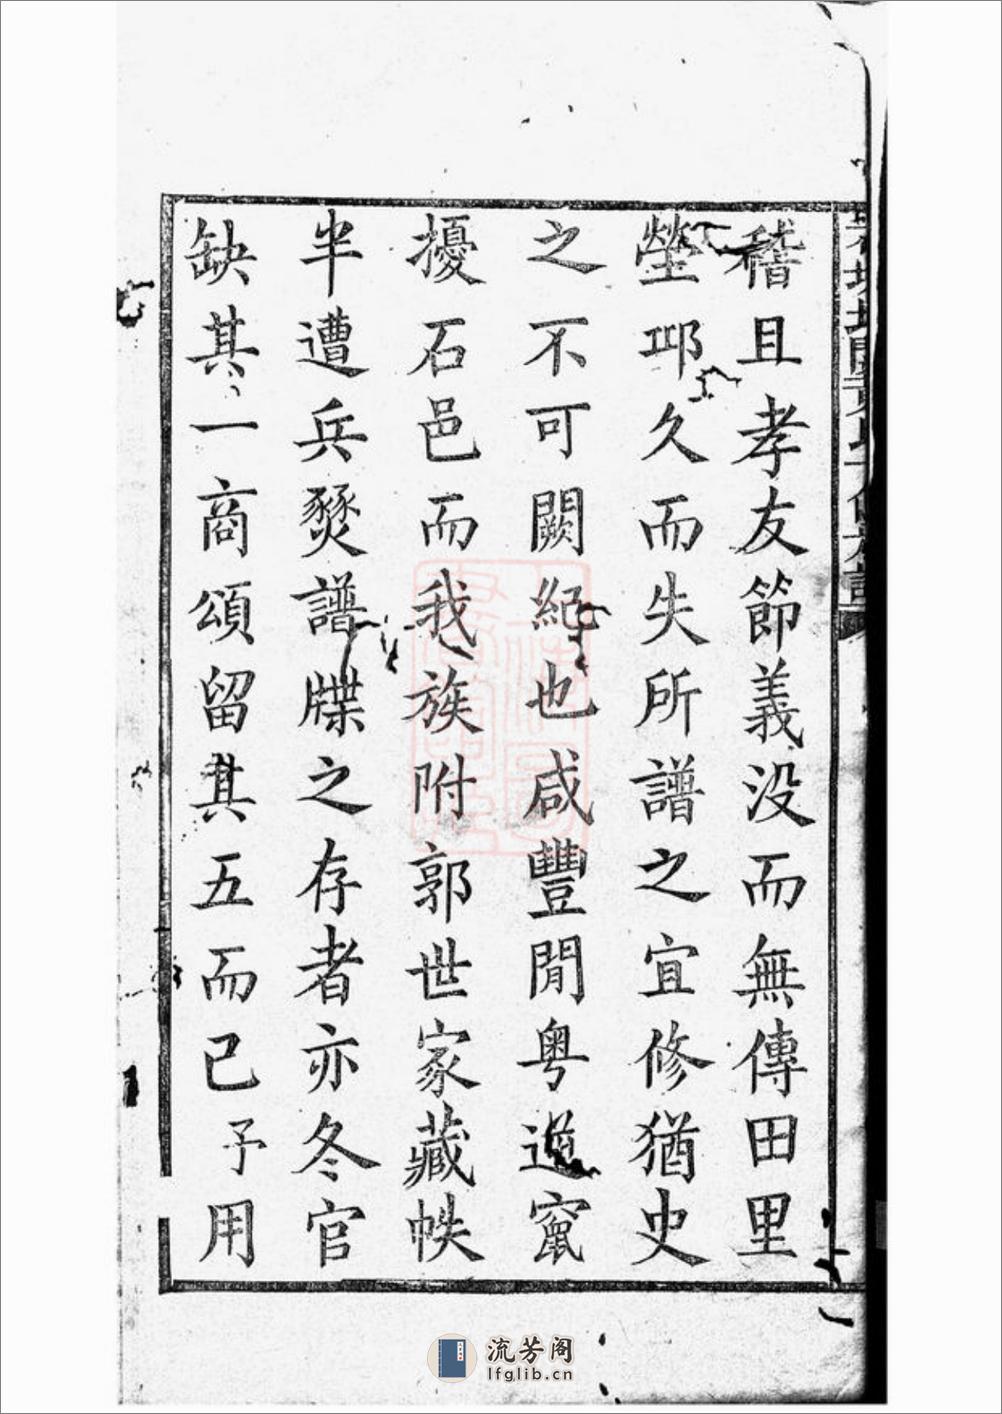 稽且孝友節義没而無傳田里
塋邛久而失所譜之宜修猶史
之不可闕紀也咸豐間粤逆竄
擾石邑而我族附郭世家藏帙
半遭兵燹譜牒之存者亦冬官
缺其一商頌留其五而已予用
流芳阁
lfglib.cn